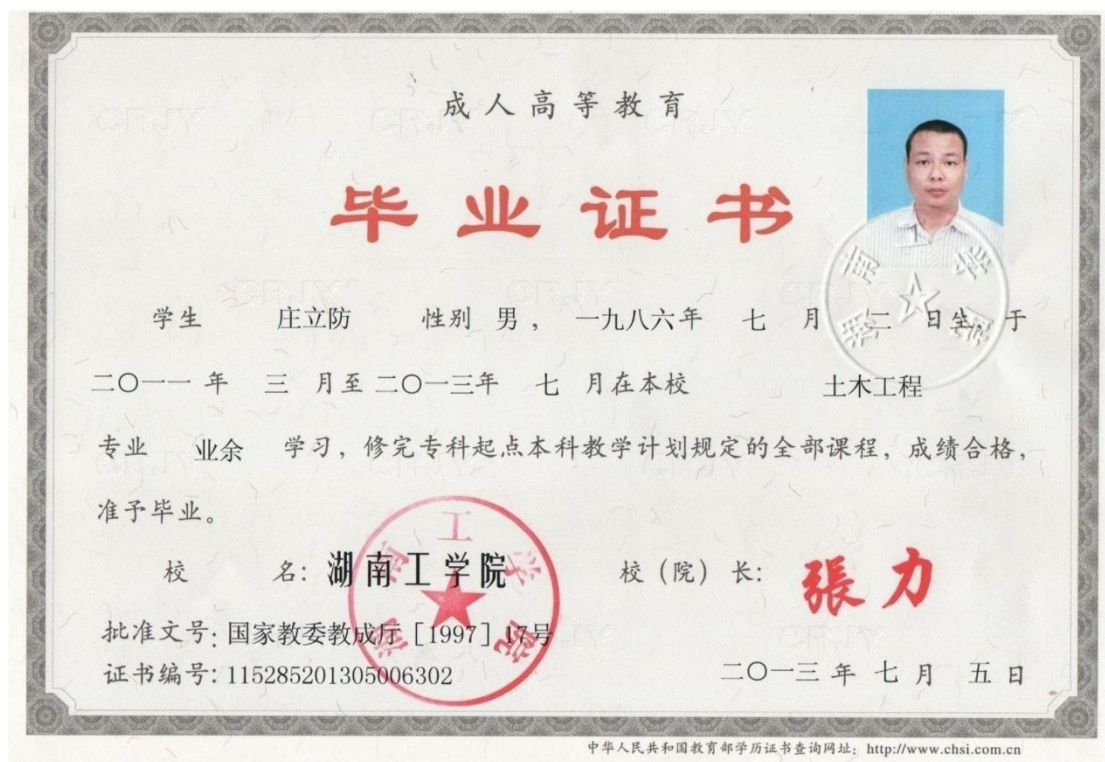 成人高等教育
毕业证书
学生 庄立防 性别 男， 一九八六年 七 月 二 日生，于
二〇一一 年 三 月至 二〇一三年 七 月在本校 土木工程
专业 业余 学习，修完专科起点本科教学计划规定的全部课程，成绩合格，
准予毕业。
校 名：湖南工学院 校（院）长：張力
批准文号：国家教委教成厅［1997］17号
证书编号：115285201305006302
二〇一三 年 七 月 五 日
湖南工学院
中华人民共和国教育部学历证书查询网址：http://www.chsi.com.cn